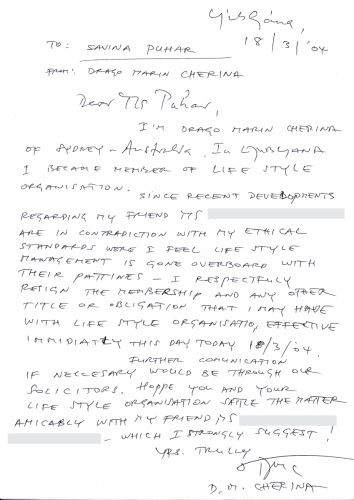 Ljubljana,
18/3/'04
TO: SAVINA PUHAR
FROM: DRAGO MARIN CHERINA
Dear Ms Puhar,
I'M DRAGO MARIN CHERINA
OF SYDNEY - Australia. In LJUBLJANA
I BECAME MEMBER OF LIFE STYLE
ORGANISATION.
SINCE RECENT DEVELOPMENTS
REGARDING MY FRIEND MS
ARE IN CONTRADICTION WITH MY ETHICAL
STANDARDS WERE I FEEL LIFE STYLE
MANAGEMENT IS GONE OVERBOARD WITH
THEIR - I RESPECTFULY
RESIGN THE MEMBERSHIP AND ANY OTHER
TITLE OR OBLIGATION THAT I MAY HAVE
WITH LIFE STYLE ORGANISATIO, EFFECTIVE
THIS DAY TODAY 18/3/'04.
FURTHER COMUNICATION
IF NECCESARY WOULD BE THROUGH OUR
SOLICITORS. HOPPE YOU AND YOUR
LIFE STYLE ORGANISATION SATTLE THE MATTER
AMICABLY WITH MY FRIEND MS
- WHICH I STRONGLY SUGGEST!
YRS. TRULLY
D. M. CHERINA